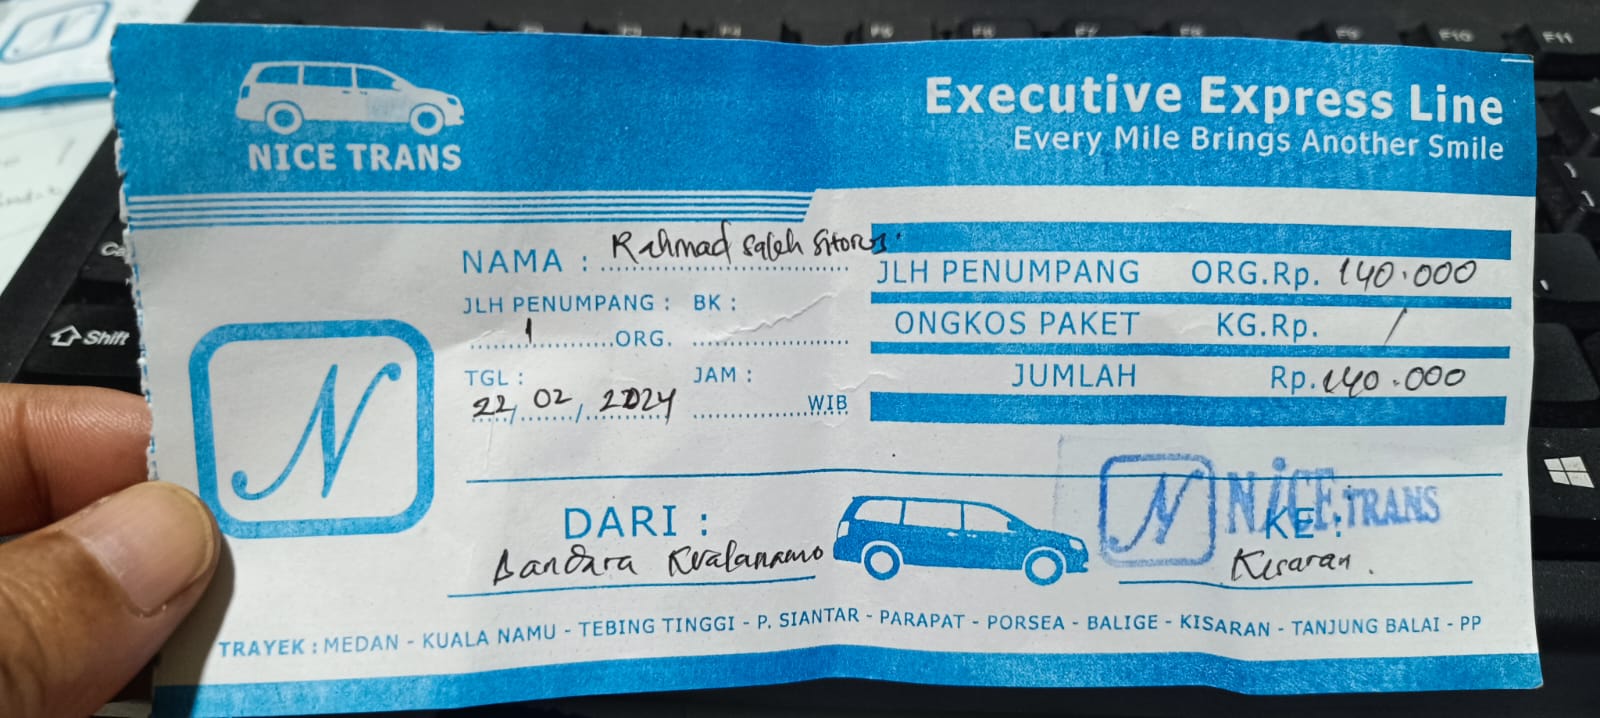 NICE TRANS
Executive Express Line
Every Mile Brings Another Smile
NAMA : Rahmad Saleh Sitorus
JLH PENUMPANG : BK :
1 ORG.
TGL : JAM :
22/02/2024 WIB
JLH PENUMPANG ORG.Rp. 140.000
ONGKOS PAKET KG.Rp. /
JUMLAH Rp. 140.000
N
DARI :
Bandara Kualanamo
N NiCE TRANS
KE :
Kisaran .
TRAYEK : MEDAN - KUALA NAMU - TEBING TINGGI - P. SIANTAR - PARAPAT - PORSEA - BALIGE - KISARAN - TANJUNG BALAI - PP
Shift
F10
F11